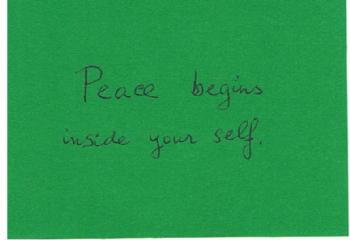 Peace begins
inside your self.